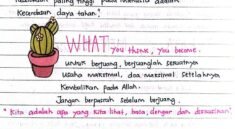 Kecerdasan paling tinggi pada manusia adalah
Kecerdasan daya tahan!
WHAT you think, you become.
untuk berjuang, berjuanglah sekuatnya
usaha maksimal, doa maksimal setelahnya
Kembalikan pada Allah.
Jangan berpasrah sebelum berjuang.
" Kita adalah apa yang kita lihat, baca, dengar dan